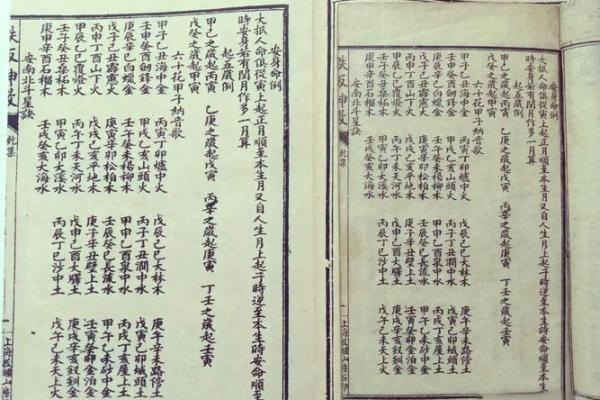 安身命例
大抵人命俱從寅上起正月順至本生月又自人生月上起子時逆至本生時安命順至
時安身若有閏月作多一月算
起五歲例
甲己之歲起丙寅 乙庚之歲起戊寅 丙辛之歲起庚寅 丁壬之歲起壬寅
戊癸之歲起甲寅
六十花甲子納音歌
甲子乙丑海中金 丙寅丁卯爐中火 戊辰己巳大林木 庚午辛未路傍土
壬申癸酉劍鋒金 甲戌乙亥山頭火 丙子丁丑澗中水 戊寅己卯城頭土
庚辰辛巳白蠟金 壬午癸未楊柳木 甲申乙酉泉中水 丙戌丁亥屋上土
戊子己丑霹靂火 庚寅辛卯松柏木 壬辰癸巳長流水 甲午乙未砂中金
丙申丁酉山下火 戊戌己亥平地木 庚子辛丑壁上土 壬寅癸卯金泊金
甲辰乙巳覆燈火 丙午丁未天河水 戊申己酉大驛土 庚戌辛亥釵釧金
壬子癸丑桑柘木 甲寅乙卯大溪水 丙辰丁巳沙中土 戊午己未天上火
庚申辛酉石榴木 壬戌癸亥大海水
安南北斗星訣
鉄板神數 乾集 一 上海校經山房石印
安身命例
大抵人命俱從寅上起正月順至本生月又自人生月上起子時逆至本生時安命順至
時安身若有閏月作多一月算
起五歲例
甲己之歲起丙寅 乙庚之歲起戊寅 丙辛之歲起庚寅 丁壬之歲起壬寅
戊癸之歲起甲寅
六十花甲子納音歌
甲子乙丑海中金 丙寅丁卯爐中火 戊辰己巳大林木 庚午辛未路傍土
壬申癸酉劍鋒金 甲戌乙亥山頭火 丙子丁丑澗中水 戊寅己卯城頭土
庚辰辛巳白蠟金 壬午癸未楊柳木 甲申乙酉泉中水 丙戌丁亥屋上土
戊子己丑霹靂火 庚寅辛卯松柏木 壬辰癸巳長流水 甲午乙未砂中金
丙申丁酉山下火 戊戌己亥平地木 庚子辛丑壁上土 壬寅癸卯金泊金
甲辰乙巳覆燈火 丙午丁未天河水 戊申己酉大驛土 庚戌辛亥釵釧金
壬子癸丑桑柘木 甲寅乙卯大溪水 丙辰丁巳沙中土 戊午己未天上火
庚申辛酉石榴木 壬戌癸亥大海水
安南北斗星訣
鉄板神數 乾集 一 上海校經山房石印